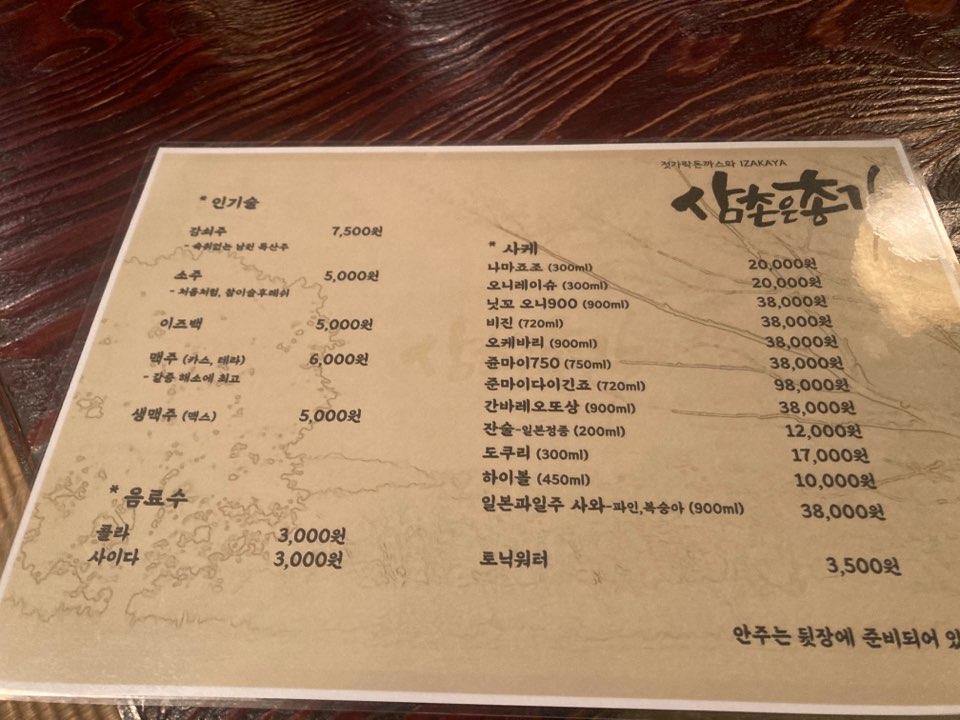 젓가락돈까스와 IZAKAYA
삼촌은총각
* 인기술
감쇠주 7,500원
- 숙취없는 남원 특산주
소주 5,000원
- 처음처럼, 참이슬후레쉬
이즈백 5,000원
맥주 (카스, 테라) 6,000원
- 갈증 해소에 최고
생맥주 (맥스) 5,000원
* 음료수
콜라 3,000원
사이다 3,000원
* 사케
나마죠조 (300ml) 20,000원
오니레이슈 (300ml) 20,000원
닛꼬 오니900 (900ml) 38,000원
비진 (720ml) 38,000원
오케바리 (900ml) 38,000원
쥰마이750 (750ml) 38,000원
준마이다이긴죠 (720ml) 98,000원
간바레오또상 (900ml) 38,000원
잔술-일본정종 (200ml) 12,000원
도쿠리 (300ml) 17,000원
하이볼 (450ml) 10,000원
일본파일주 사와-파인,복숭아 (900ml) 38,000원
토닉워터 3,500원
안주는 뒷장에 준비되어 있